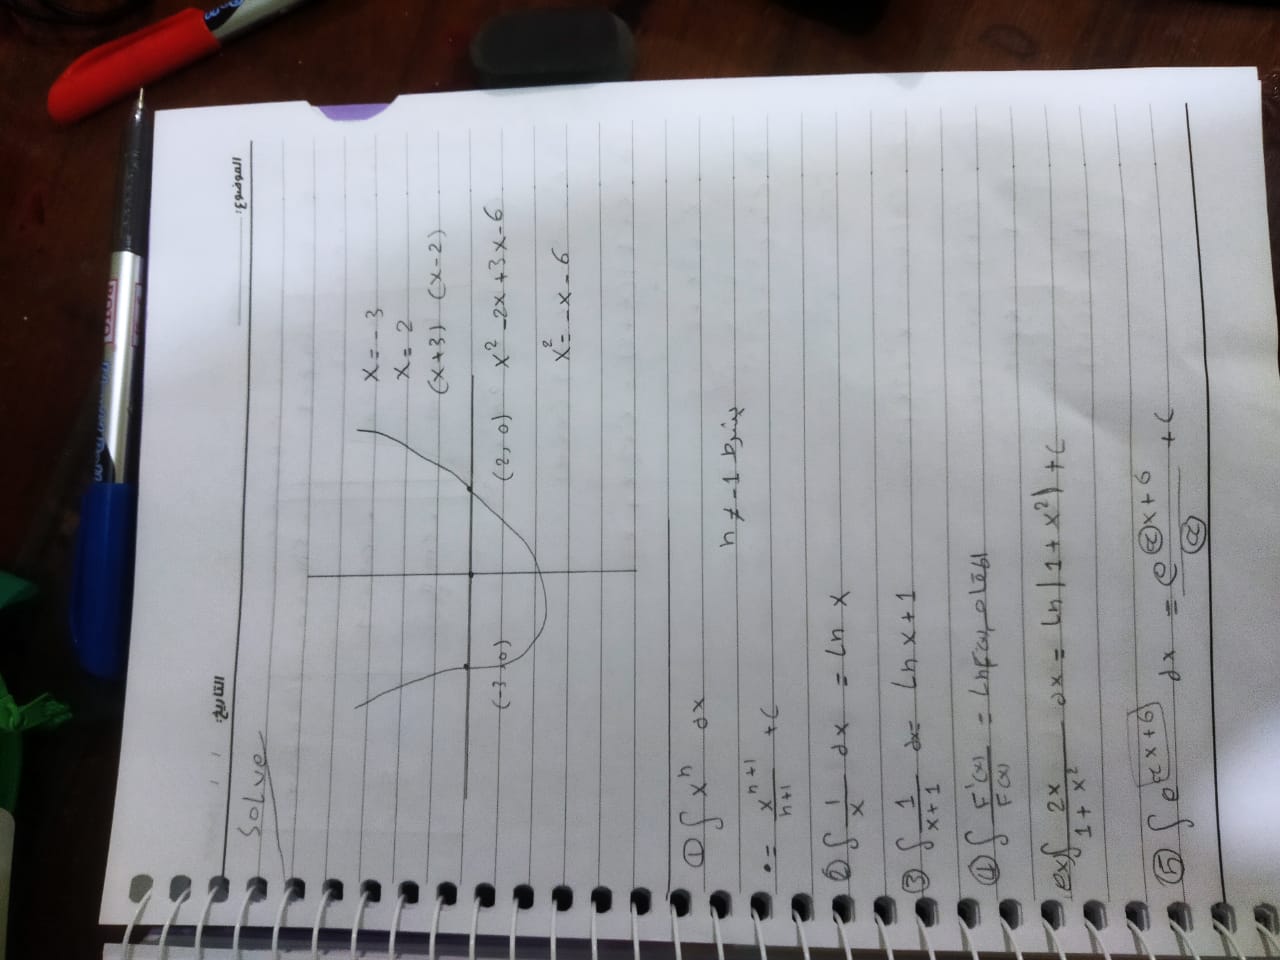 التاريخ: / /
الموضوع:
Solve
x = - 3
x = 2
(x+3) (x-2)
(-3,0)
(2,0)
x² -2x +3x-6
x² = -x - 6
① ∫ xⁿ dx
بشرط n ≠ -1
• = xⁿ⁺¹/n+1 + C
② ∫ 1/x dx = Ln x
③ ∫ 1/x+1 dx = Ln x+1
④ ∫ F'(x)/F(x) = Ln F(x) المقام
ex) ∫ 2x/1+x² dx = Ln |1+x²| + C
⑤ ∫ e^(ax+b) dx = e^(ax+b)/a + C